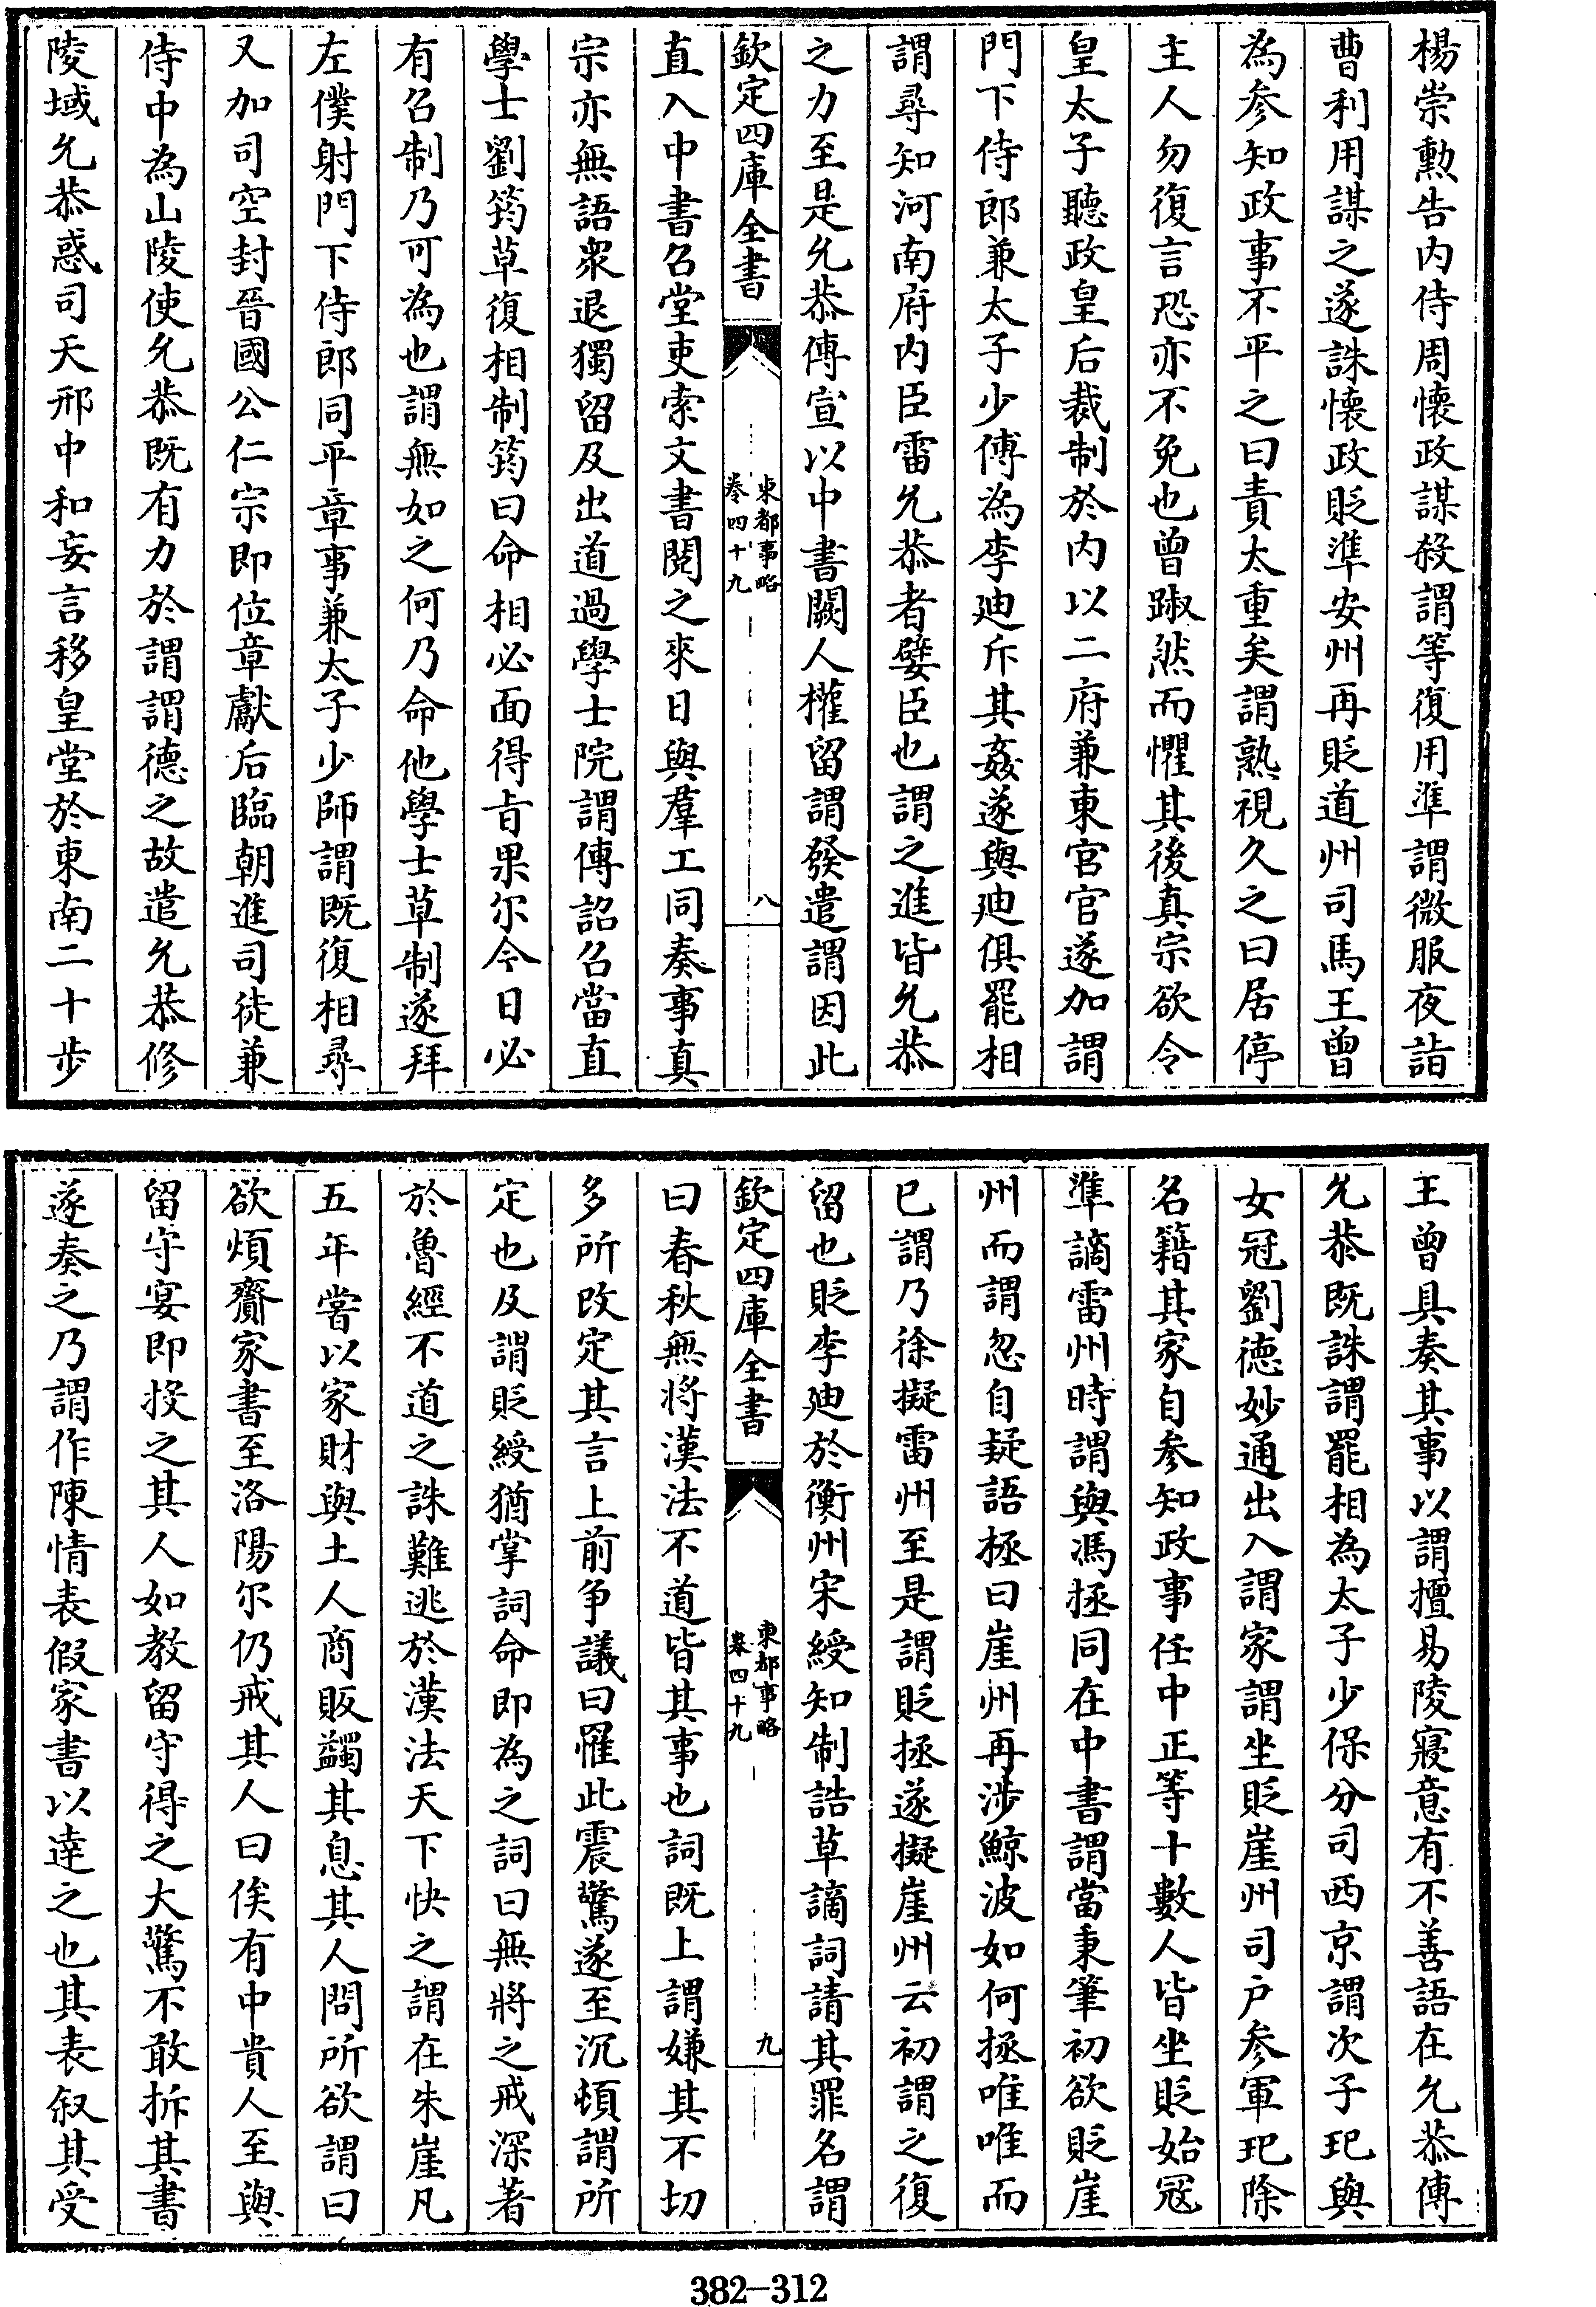 楊崇勲告内侍周懐政謀殺謂等復用準謂微服夜詣
曹利用謀之遂誅懐政貶準安州再貶道州司馬王曾
為參知政事不平之曰責太重矣謂熟視久之曰居停
主人勿復言恐亦不免也曾踧然而懼其後真宗欲令
皇太子聽政皇后裁制於内以二府兼東宫官遂加謂
門下侍郎兼太子少傅為李廸斥其姦遂與廸俱罷相
謂尋知河南府内臣雷允恭者嬖臣也謂之進皆允恭
之力至是允恭傳宣以中書闕人權留謂發遣謂因此
欽定四庫全書
東都事略
卷四十九
八
直入中書召堂吏索文書閱之來日與羣工同奏事真
宗亦無語衆退獨留及出道過學士院謂傳詔召當直
學士劉筠草復相制筠曰命相必面得旨果尔今日必
有召制乃可為也謂無如之何乃命他學士草制遂拜
左僕射門下侍郎同平章事兼太子少師謂既復相尋
又加司空封晉國公仁宗即位章獻后臨朝進司徒兼
侍中為山陵使允恭既有力於謂謂德之故遣允恭修
陵域允恭惑司天邢中和妄言移皇堂於東南二十步
王曾具奏其事以謂擅易陵寢意有不善語在允恭傳
允恭既誅謂罷相為太子少保分司西京謂次子玘與
女冠劉德妙通出入謂家謂坐貶崖州司户參軍玘除
名籍其家自參知政事任中正等十數人皆坐貶始冦
準謫雷州時謂與馮拯同在中書謂當秉筆初欲貶崖
州而謂忽自疑語拯曰崖州再涉鯨波如何拯唯唯而
已謂乃徐擬雷州至是謂貶拯遂擬崖州云初謂之復
留也貶李廸於衡州宋綬知制誥草謫詞請其罪名謂
欽定四庫全書
東都事略
卷四十九
九
曰春秋無將漢法不道皆其事也詞既上謂嫌其不切
多所改定其言上前争議曰罹此震驚遂至沉頓謂所
定也及謂貶綬猶掌詞命即為之詞曰無將之戒深著
於魯經不道之誅難逃於漢法天下快之謂在朱崖凡
五年嘗以家財與土人商販蠲其息其人問所欲謂曰
欲煩齎家書至洛陽尔仍戒其人曰俟有中貴人至與
留守宴即投之其人如教留守得之大驚不敢拆其書
遂奏之乃謂作陳情表假家書以達之也其表叙其受
382-312